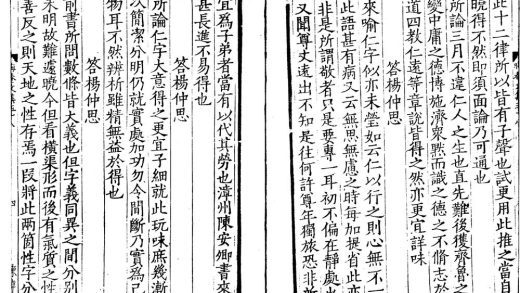 此十二律所以皆有子聲也試更用此推之當自
曉得不然即須面論乃可通也
所論三月不違仁人之生也直先難後獲齊魯之
變中庸之德博施濟衆默而識之德之不脩志於
道四教仁遠等章説皆得之然亦更宜詳味
答楊仲思
來喻仁字似亦未瑩如云仁以行之則心無不一
此語甚有病又云無思無慮之時每加提省此亦
非是所謂敬者只是要專一耳初不偏在靜處
又聞尊丈遠出不知是往何許尊年獨旅恐非
宜爲子弟者當有以代其勞也漳州陳安卿書來
甚長進不易得也
答楊仲思
所論仁字大意得之更宜子細就此玩味庶幾漸
以簡潔分明仍就實處加功勿令間斷乃實爲己
物耳不然辨析雖精無益於得也
答楊仲思
前書所問數條皆大義也但字義同異之間分別
未明故難遽曉今但看橫渠形而後有氣質之性
善反之則天地之性存焉一段將此兩箇性字分